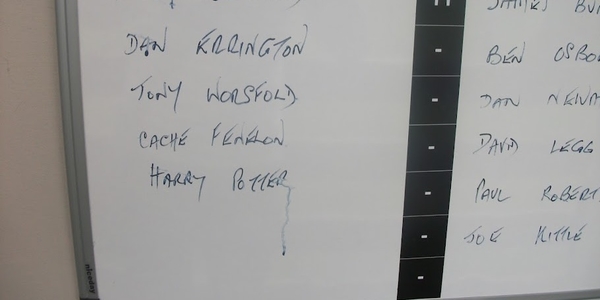 DAN ERRINGTON
TONY WORSFOLD
CACHE FENELON
HARRY POTTER
JAMES
BEN
DAN
DAVID LEGG
PAUL ROBERT
JOE KITTLE